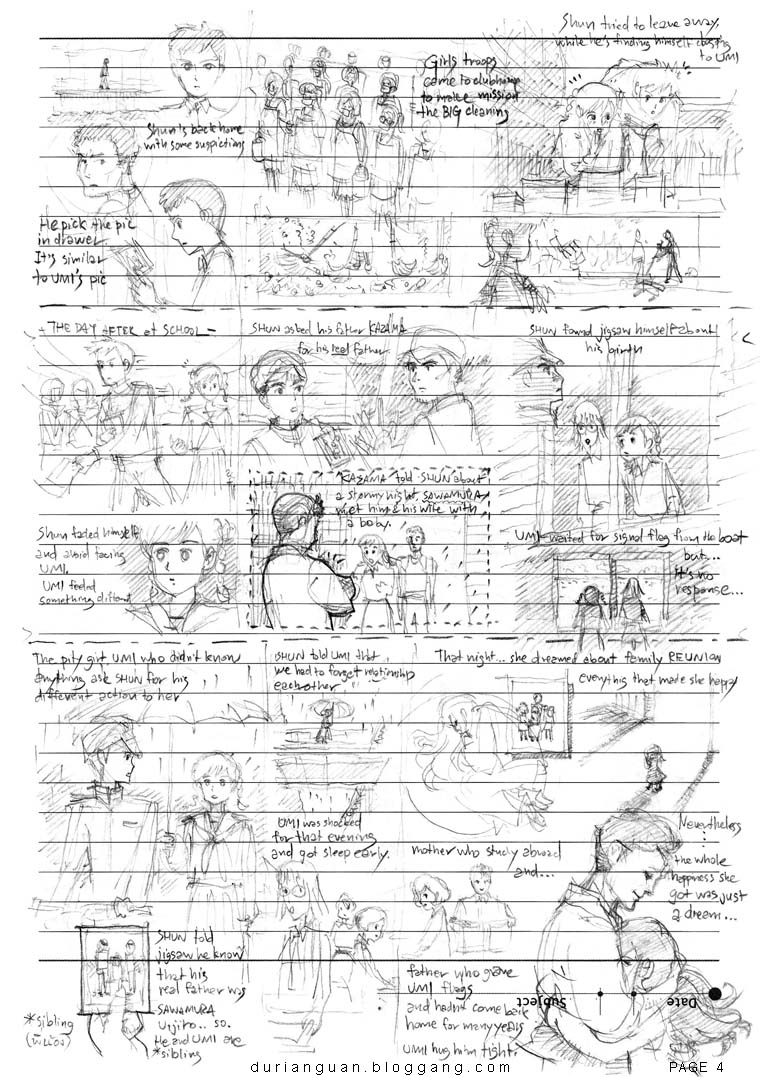 Shun tried to leave away,
while he's finding himself closing
to UMI
Girls troops
come to clubhouse
to make mission
the BIG cleaning
Shun's back home
with some suspictions
He pick the pic
in drawer
It's similar
to UMI's pic
- THE DAY AFTER at SCHOOL -
SHUN asked his father KAZAMA
for his real father
SHUN found jigsaw himself about
his birth
KAZAMA told SHUN about
a stormy night, SAWAMURA
met him & his wife with
a baby.
Shun faded himself
and avoid facing
UMI.
UMI feeled
something different
UMI waited for signal flag from the boat
but...
it's no
response...
The pity girl UMI who didn't know
anything ask SHUN for his
different action to her
SHUN told UMI that
we had to forget relationship
each other
That night... she dreamed about family REUNION
everything that made she happy
UMI was shocked
for that evening
and got sleep early.
mother who study abroad
and...
Nevertheless
...
the whole
happiness she
got was just
a dream...
SHUN told
jigsaw he know
that his
real father was
SAWAMURA
so.
He and UMI are
*sibling
*sibling
(พี่น้อง)
father who gave
UMI flags
and hadn't come back
home for many years
UMI hug him tight!
Subject
Date
durianguan.bloggang.com
PAGE 4